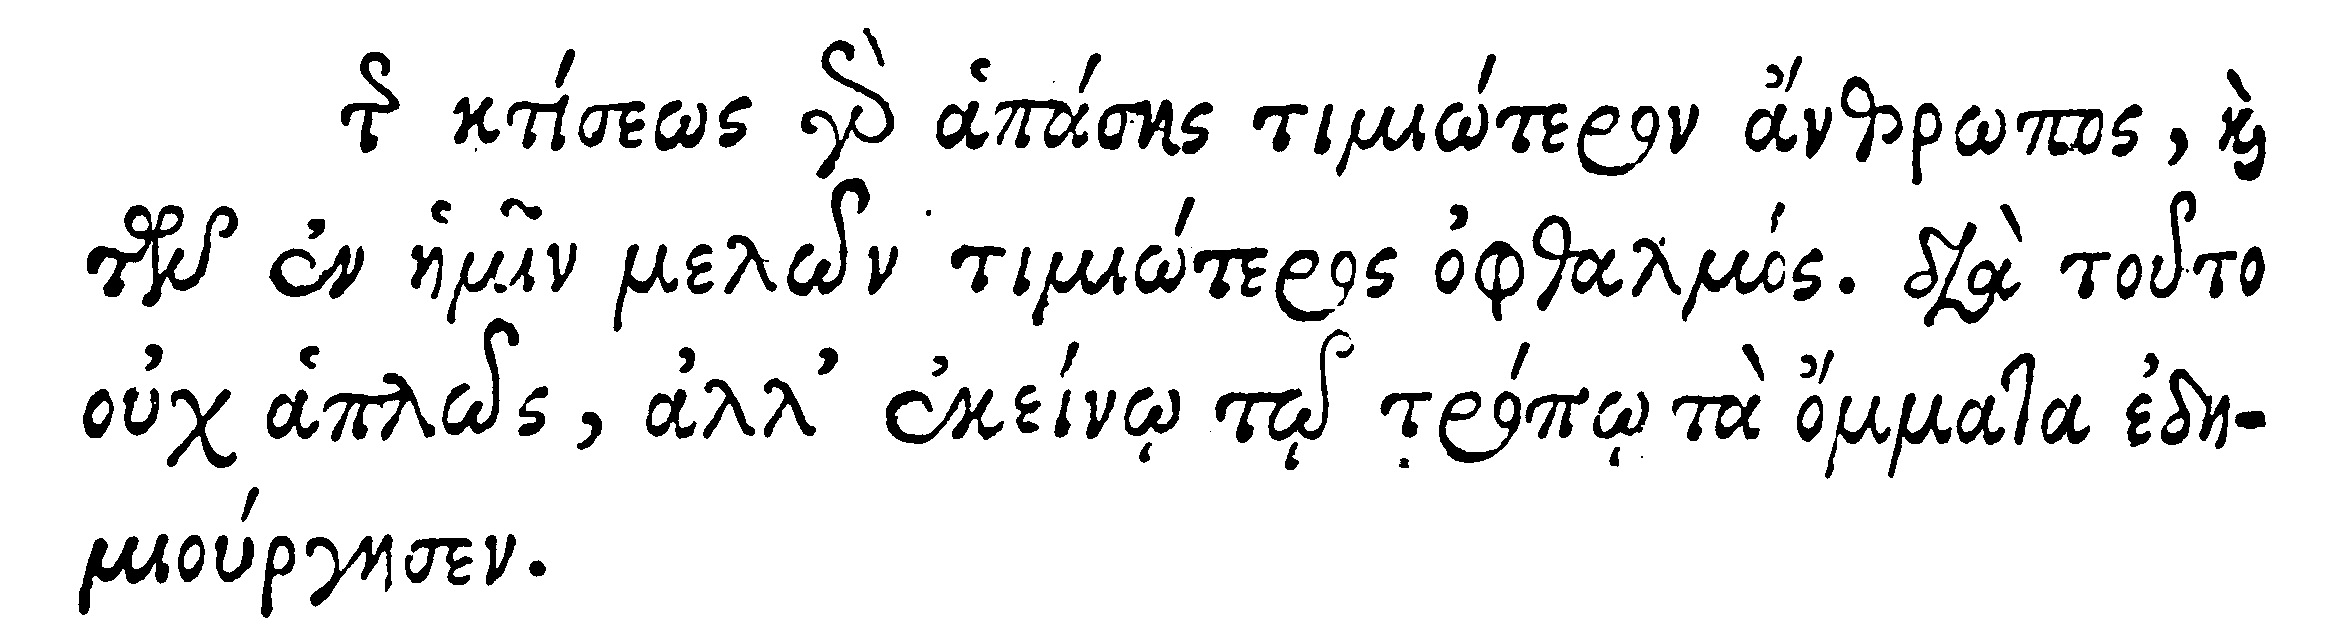 τῆς κτίσεως γὰρ ἁπάσης τιμιώτερον ἄνθρωπος, καὶ
τῶν ἐν ἡμῖν μελῶν τιμιώτερος ὀφθαλμός. διὰ τοῦτο
οὐχ ἁπλῶς, ἀλλ’ ἐκείνῳ τῷ τρόπῳ τὰ ὄμματα ἐδη-
μιούργησεν.